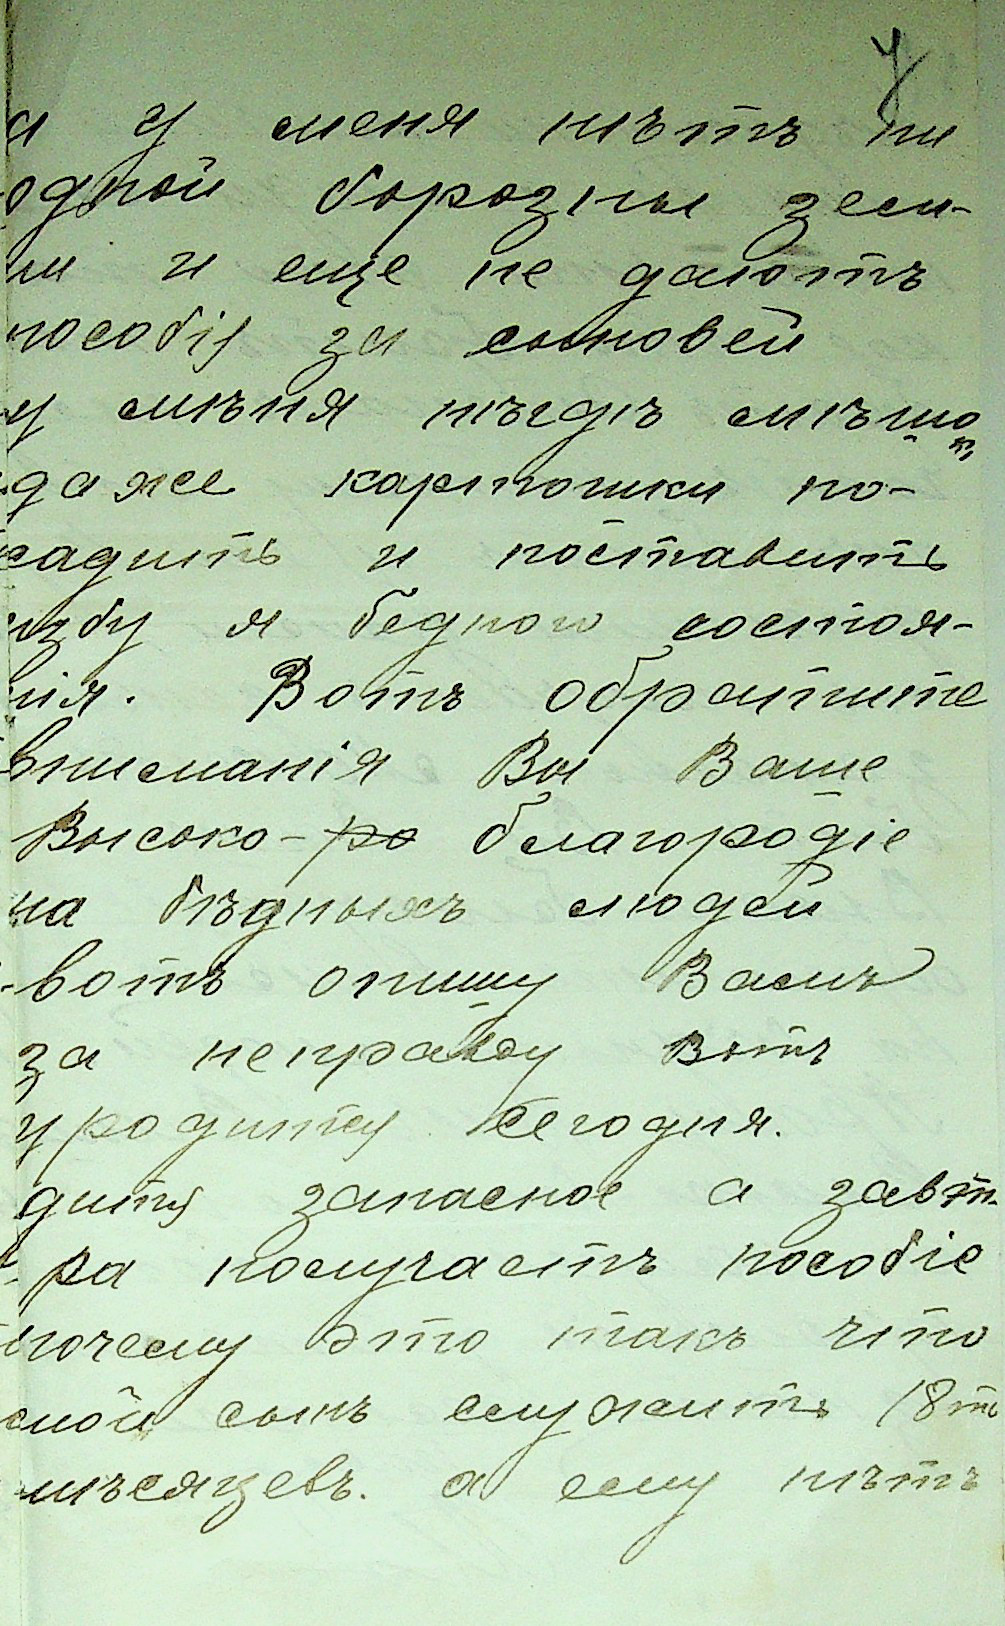 а у меня нѣтъ ни
одной борозны зем-
ли и еще не даютъ
пособія за сыновей
у мѣня нѣгдѣ мѣшок
даже картошки по-
садить и поставить
избу я бедного состоя-
нія. Вотъ обратите
вниманія Вы Ваше
Высоко-ро благородіе
на бѣдныхъ людей
вотъ опишу Вамъ
за неправду вотъ
уродитя сегодня.
дитя запасное а завт-
ра получаетъ пособіе
почему это такъ что
мой сынъ служитъ 18ть
мѣсяцевъ. а ему нѣтъ